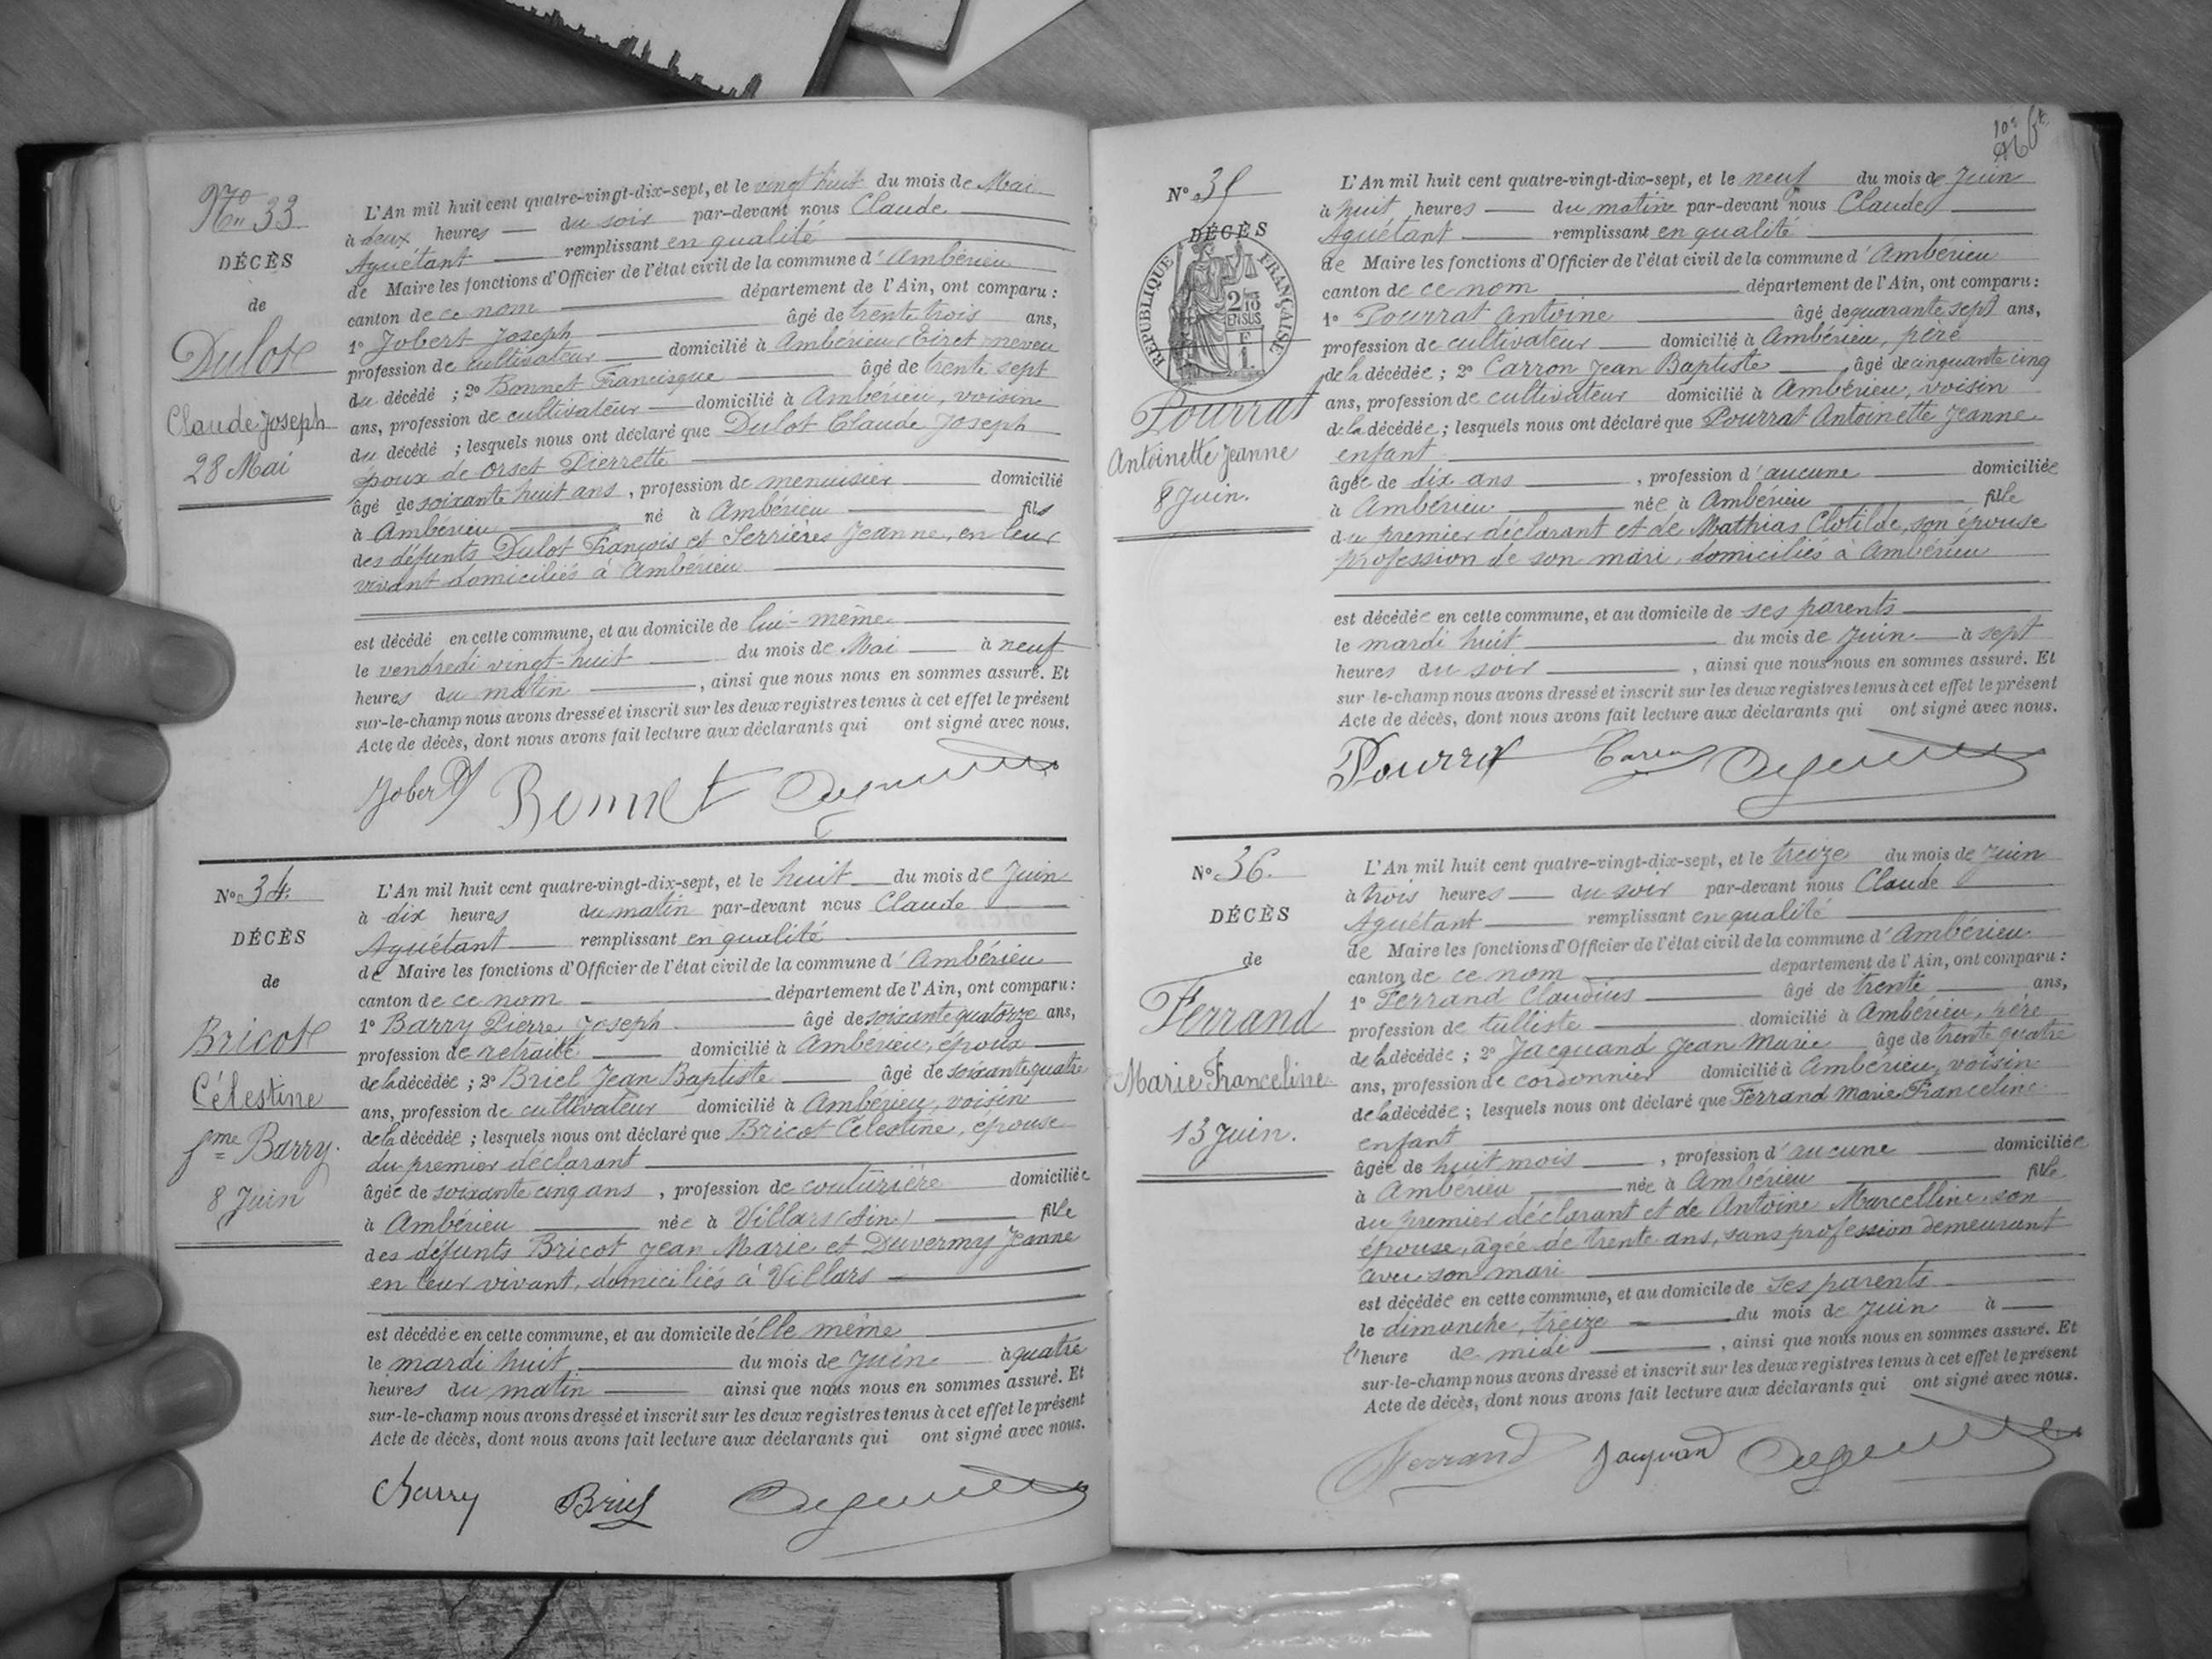 No 33
DÉCÈS
de
Dulot
Claude Joseph
28 Mai
L'An mil huit cent quatre-vingt-dix-sept, et le vingt huit du mois de Mai
à deux heures du soir par-devant nous Claude
Aguétant remplissant en qualité
de Maire les fonctions d'Officier de l'état civil de la commune d'Ambérieu
canton de ce nom département de l'Ain, ont comparu :
1º Jobert Joseph âgé de trente trois ans,
profession de cultivateur domicilié à Ambérieu, Tiret neveu
du décédé ; 2º Bonnet Francisque âgé de trente sept
ans, profession de cultivateur domicilié à Ambérieu, voisin
du décédé ; lesquels nous ont déclaré que Dulot Claude Joseph
époux de Orset Pierrette
âgé de soixante huit ans, profession de menuisier domicilié
à Ambérieu né à Ambérieu fils
des défunts Dulot François et Serrières Jeanne, en leur
vivant domiciliés à Ambérieu
est décédé en cette commune, et au domicile de lui-même
le vendredi vingt-huit du mois de Mai à neuf
heures du matin, ainsi que nous nous en sommes assuré. Et
sur-le-champ nous avons dressé et inscrit sur les deux registres tenus à cet effet le présent
Acte de décès, dont nous avons fait lecture aux déclarants qui ont signé avec nous.
Jobert Bonnet Aguétant
No 34
DÉCÈS
de
Bricot
Célestine
fme Barry.
8 Juin
L'An mil huit cent quatre-vingt-dix-sept, et le huit du mois de Juin
à dix heures du matin par-devant nous Claude
Aguétant remplissant en qualité
de Maire les fonctions d'Officier de l'état civil de la commune d'Ambérieu
canton de ce nom département de l'Ain, ont comparu :
1º Barry Pierre Joseph âgé de soixante quatorze ans,
profession de retraité domicilié à Ambérieu, époux
de la décédée ; 2º Briel Jean Baptiste âgé de soixante quatre
ans, profession de cultivateur domicilié à Ambérieu, voisin
de la décédée ; lesquels nous ont déclaré que Bricot Célestine, épouse
du premier déclarant
âgée de soixante cinq ans, profession de couturière domiciliée
à Ambérieu née à Villars (Ain) fille
des défunts Bricot Jean Marie et Duvermy Jeanne
en leur vivant, domiciliés à Villars
est décédée en cette commune, et au domicile d'elle même
le mardi huit du mois de Juin à quatre
heures du matin ainsi que nous nous en sommes assuré. Et
sur-le-champ nous avons dressé et inscrit sur les deux registres tenus à cet effet le présent
Acte de décès, dont nous avons fait lecture aux déclarants qui ont signé avec nous.
Barry Briel Aguétant
No 35
DÉCÈS
RÉPUBLIQUE FRANÇAISE
2/10 EN SUS
F 1.
Pourrat
Antoinette Jeanne
8 Juin.
L'An mil huit cent quatre-vingt-dix-sept, et le neuf du mois de Juin
à huit heures du matin par-devant nous Claude
Aguétant remplissant en qualité
de Maire les fonctions d'Officier de l'état civil de la commune d'Ambérieu
canton de ce nom département de l'Ain, ont comparu :
1º Pourrat Antoine âgé de quarante sept ans,
profession de cultivateur domicilié à Ambérieu, père
de la décédée ; 2º Carron Jean Baptiste, âgé de cinquante cinq
ans, profession de cultivateur domicilié à Ambérieu, voisin
de la décédée ; lesquels nous ont déclaré que Pourrat Antoinette Jeanne
enfant
âgée de dix ans, profession d'aucune domiciliée
à Ambérieu née à Ambérieu fille
du premier déclarant et de Mathias Clotilde, son épouse
profession de son mari, domiciliés à Ambérieu
est décédée en cette commune, et au domicile de ses parents
le mardi huit du mois de Juin à sept
heures du soir, ainsi que nous nous en sommes assuré. Et
sur-le-champ nous avons dressé et inscrit sur les deux registres tenus à cet effet le présent
Acte de décès, dont nous avons fait lecture aux déclarants qui ont signé avec nous.
Pourrat Carron Aguétant
No 36.
DÉCÈS
de
Ferrand
Marie Franceline
13 Juin.
L'An mil huit cent quatre-vingt-dix-sept, et le treize du mois de Juin
à trois heures du soir par-devant nous Claude
Aguétant remplissant en qualité
de Maire les fonctions d'Officier de l'état civil de la commune d'Ambérieu
canton de ce nom département de l'Ain, ont comparu :
1º Ferrand Claudius âgé de trente ans,
profession de tulliste domicilié à Ambérieu, père
de la décédée ; 2º Jacquand Jean Marie âgé de trente quatre
ans, profession de cordonnier domicilié à Ambérieu, voisin
de la décédée ; lesquels nous ont déclaré que Ferrand Marie Franceline
enfant
âgée de huit mois, profession d'aucune domiciliée
à Ambérieu née à Ambérieu fille
du premier déclarant et de Antoine Marcelline, son
épouse, âgée de trente ans, sans profession demeurant
avec son mari
est décédée en cette commune, et au domicile de ses parents
le dimanche, treize du mois de Juin à
l'heure de midi, ainsi que nous nous en sommes assuré. Et
sur-le-champ nous avons dressé et inscrit sur les deux registres tenus à cet effet le présent
Acte de décès, dont nous avons fait lecture aux déclarants qui ont signé avec nous.
Ferrand Jacquand Aguétant